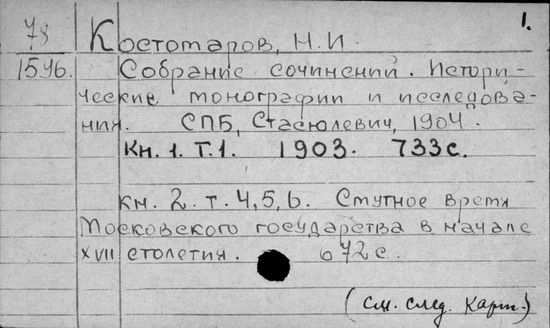 1.
78 Костомаров, Н.И.
1596. Собрание сочинений. Истори-
ческие монографии и исследова-
ния. СПБ, Стасюлевич, 1904.
Кн. 1. Т. 1. 1903. 733 с.
кн. 2. т. 4, 5, 6. Смутное время
Московского государства в начале
XVII столетия. 672 с.
(См. след. карт.)